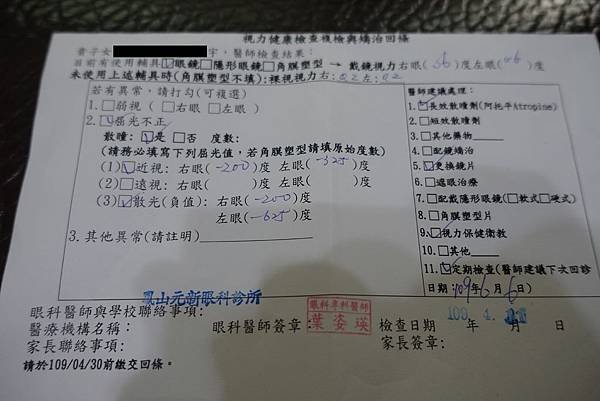 視力健康檢查複檢與矯治回條
貴子女 字,醫師檢查結果:
目前有使用輔具☑眼鏡□隱形眼鏡□角膜塑型→戴鏡視力右眼( )度左眼( )度
未使用上述輔具時(角膜塑型不填):裸視視力右:0.2左:0.2
若有異常,請打勾(可複選)
1.□弱視(□右眼□左眼)
2.☑屈光不正
散瞳:☑是□否 度數:
(請務必填寫下列屈光值,若角膜塑型請填原始度數)
(1)☑近視:右眼(-200)度 左眼(-325)度
(2)□遠視:右眼( )度 左眼( )度
(3)☑散光(負值):右眼(-200)度
左眼(-625)度
3.其他異常(請註明)
醫師建議處理:
1.☑長效散瞳劑(阿托平Atropine)
2.□短效散瞳劑
3.□其他藥物
4.□配鏡矯治
5.☑更換鏡片
6.□遮眼治療
7.□配戴隱形眼鏡(□軟式□硬式)
8.□角膜塑型片
9.☑視力保健衛教
10.□其他
11.☑定期檢查(醫師建議下次回診
日期:109年6月6日)
鳳山元新眼科診所
眼科醫師與學校聯絡事項:
醫療機構名稱:
眼科醫師簽章:
眼科專科醫師
葉姿瑛
檢查日期 109年4.月 日
家長聯絡事項:
家長簽章:
請於109/04/30前繳交回條。